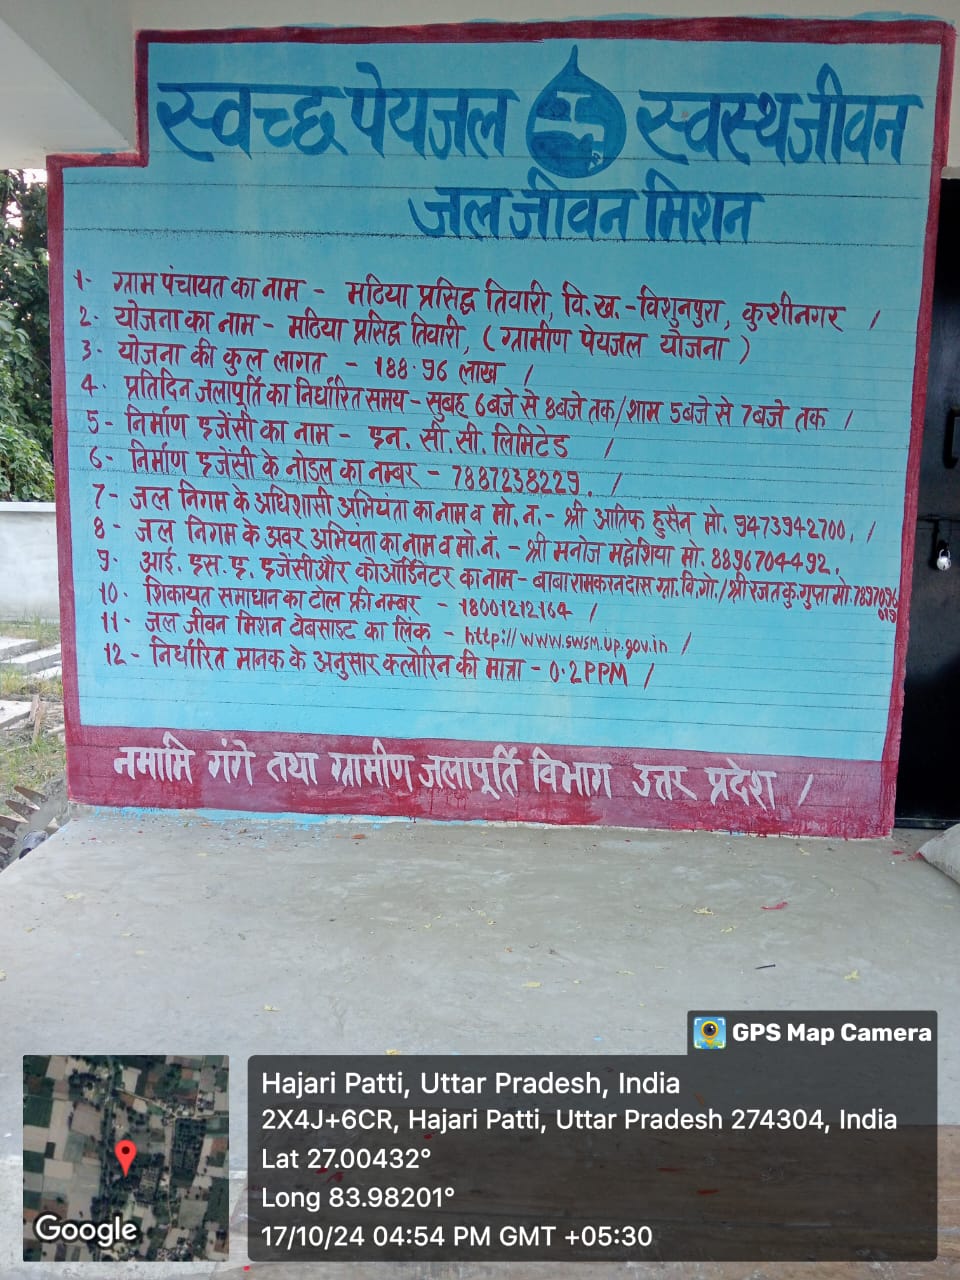 स्वच्छ पेयजल स्वस्थ जीवन
जल जीवन मिशन
1- ग्राम पंचायत का नाम - मठिया प्रसिद्ध तिवारी, वि.ख.-विशुनपुरा, कुशीनगर /
2- योजना का नाम - मठिया प्रसिद्ध तिवारी, (ग्रामीण पेयजल योजना)
3- योजना की कुल लागत - 188.96 लाख /
4- प्रतिदिन जलापूर्ति का निर्धारित समय - सुबह 6बजे से 8बजे तक/शाम 5बजे से 7बजे तक /
5- निर्माण इजेंसी का नाम - इन. सी. सी. लिमिटेड /
6- निर्माण इजेंसी के नोडल का नम्बर - 7887238229. /
7- जल निगम के अधिशासी अभियंता का नाम व मो. न. - श्री आतिफ हुसैन मो. 9473942700. /
8- जल निगम के अवर अभियंता का नाम व मो. नं. - श्री मनोज मद्धेशिया मो. 8896704492.
9- आई. इस. इ. इजेंसी और कोऑर्डिनेटर का नाम - बाबा रामकरनदास ग्रा. वि. गो./श्री रजत कु. गुप्ता मो. 7897096
015
10- शिकायत समाधान का टोल फ्री नम्बर - 18001212164 /
11- जल जीवन मिशन वेबसाइट का लिंक - http://www.swsm.up.gov.in /
12- निर्धारित मानक के अनुसार क्लोरिन की मात्रा - 0.2PPM /
नमामि गंगे तथा ग्रामीण जलापूर्ति विभाग उत्तर प्रदेश /
GPS Map Camera
Hajari Patti, Uttar Pradesh, India
2X4J+6CR, Hajari Patti, Uttar Pradesh 274304, India
Lat 27.00432°
Long 83.98201°
17/10/24 04:54 PM GMT +05:30
Google